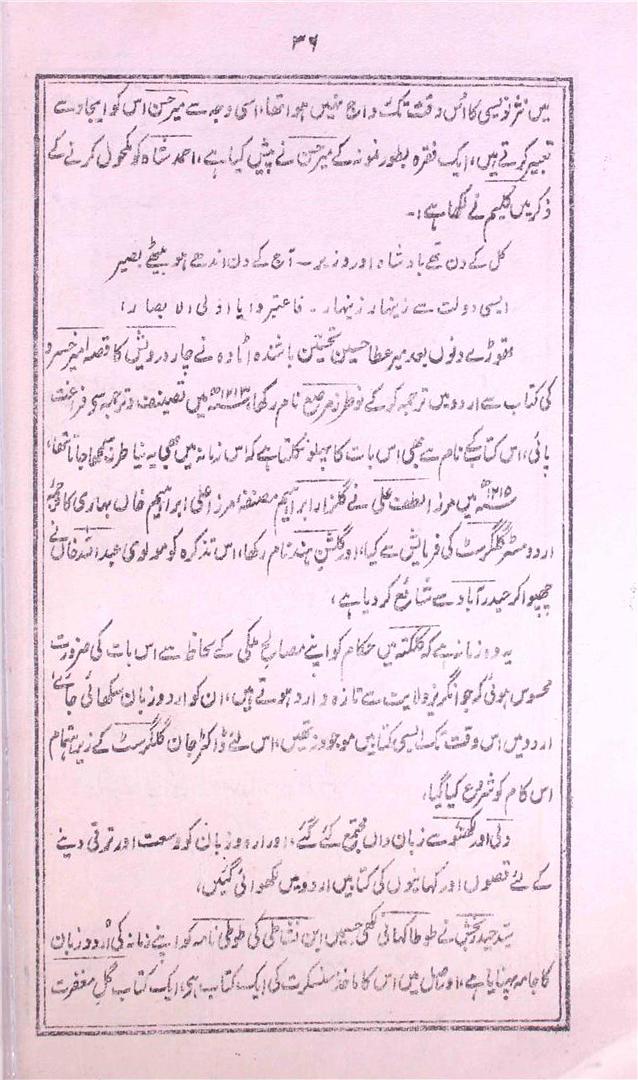 ۳۶
میں نثر نویسی کا اُس وقت تک رواج نہیں ہوا تھا، اسی وجہ سے میر حسن اس کو ایجاد سے
تعبیر کرتے ہیں، ایک فقرہ بطور نمونہ کے میر حسن نے پیش کیا ہے، احمد شاہ کو مکحول کرنے کے
ذکر میں کلیم نے لکھا ہے:۔
کل کے دن تھے بادشاہ اور وزیر ۔ آج کے دن اندھے ہو بیٹھے بصیر
ایسی دولت سے زینہار زینہار ۔ فاعتبروا یا اولی الابصار،
تھوڑے دنوں بعد میر عطا حسین تحسین باشندہ اٹاوہ نے چار درویش کا قصہ امیر خسرو
کی کتاب سے اردو میں ترجمہ کر کے نو طرز مرصع نام رکھا، ۱۲۱۳ھ میں تصنیف و ترجمہ سے فراغت
پائی، اس کتاب کے نام سے بھی اس بات کا پہلو نکلتا ہے کہ اس زمانہ میں بھی یہ نیا طرز سمجھا جاتا تھا،
۱۲۱۵ھ میں مرزا لطف علی نے گلزار ابراہیم مصنفہ مرزا علی ابراہیم خاں بہاری کا ترجمہ
اردو مسٹر گلگرسٹ کی فرمایش سے کیا، اور گلشن ہند نام رکھا، اس تذکرہ کو مولوی عبد اللہ خاں نے
چھپوا کر حیدرآباد سے شائع کر دیا ہے،
یہ وہ زمانہ ہے کہ کلکتہ میں حکام کو اپنے مصالح ملکی کے لحاظ سے اس بات کی ضرورت
محسوس ہوئی کہ جو انگریز ولایت سے تازہ وارد ہوتے ہیں، ان کو اردو زبان سکھائی جائے،
اردو میں اس وقت تک ایسی کتابیں موجود نہ تھیں، اس لئے ڈاکٹر جان گلگرسٹ کے زیر اہتمام
اس کام کو شروع کیا گیا،
دلی اور لکھنؤ سے زبان داں مجتمع کئے گئے، اور اردو زبان کو وسعت اور ترقی دینے
کے لئے قصوں اور کہانیوں کی کتابیں اردو میں لکھوائی گئیں،
سید حیدر بخش نے طوطا کہانی لکھی جس میں ابن نشاطی کی طوطی نامہ کو اپنے زمانہ کی اُردو زبان
کا جامہ پہنایا ہے، اور اصل میں اس کا ماخذ سنسکرت کی ایک کتاب ہی، ایک کتاب گل مغفرت